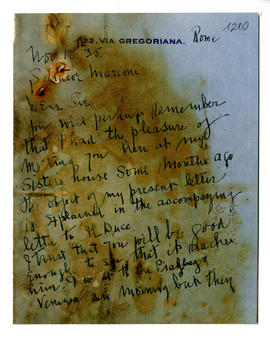 22, VIA GREGORIANA. Rome
1210
Nov 16. 35
Senator Marconi
Dear Sir
You will perhaps remember
that I had the pleasure of
meeting you here at my
Sisters house some months ago
The object of my present letter
is explained in the accompanying
letter to Il Duce.
I trust that you will be good
enough to see that it reaches
him. I went to the
Venezia this morning but they